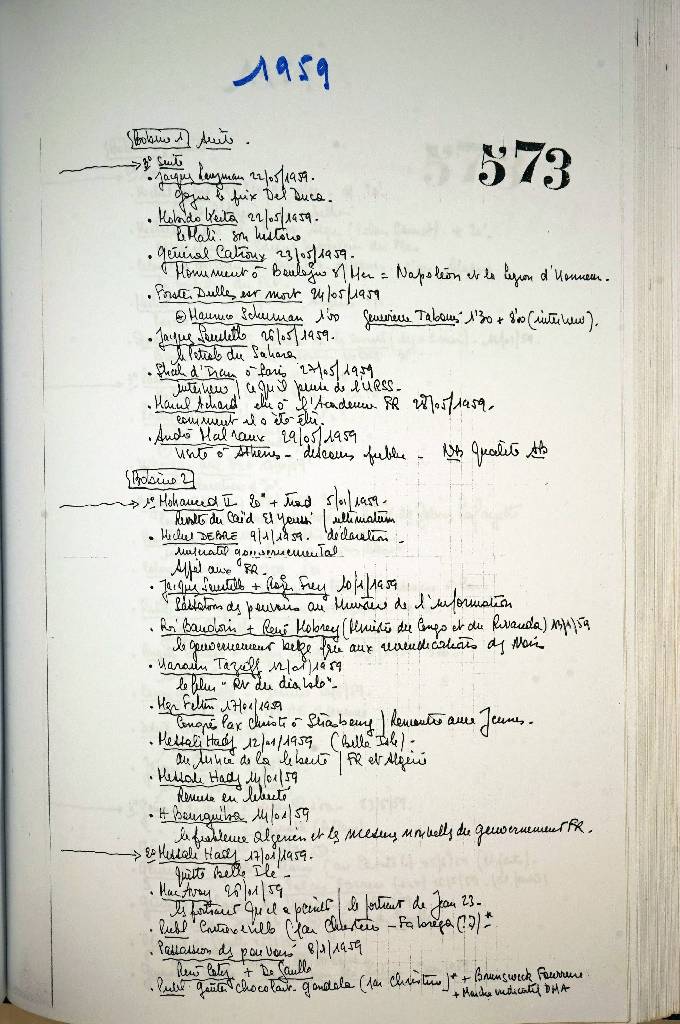 1959
573
Bobine 1 suite.
3° suite
. Jacques Lanzman 22/05/1959.
gagne le prix Del Duca.
. Mobido Keita 22/05/1959.
le Mali. son histoire
. Général Catroux 23/05/1959.
Monument à Boulogne s/ Mer = Napoléon et la Légion d'Honneur.
. Foster Dulles est mort 24/05/1959
Maurice Schuman 1'00 Geneviève Tabouis 1'30 + (interview).
. Jacques Soustelle 26/05/1959.
le Pétrole du Sahara
. Shah d'Iran à Paris 27/05/1959
interview / ce qu'il pense de l'URSS.
. Marcel Achard élu à l'Académie FR 28/05/1959.
comment il a été élu.
. André Malraux 29/05/1959
Visite à Athènes - discours public - NB Qualité AB
Bobine 2
1° Mohamed V 20" + trad 5/01/1959.
Révolte du Caïd / ultimatum
. Michel DEBRE 9/1/1959. déclaration
gouvernemental
Appel aux FR.
. Jacques Soustelle + Roger Frey 10/1/1959
Passations des pouvoirs au Ministère de l'information
. Roi Baudoin + René (Ministre du Congo et du Ruanda) 13/1/59
le gouvernement belge face aux revendications des Noirs
. Haroun Tazieff 12/01/1959
le film "RV du diable".
. Mgr Feltin 17/01/1959
Congrès Pax Christi à Strasbourg / Rencontre avec Jeunes.
. Messali Hadj 12/01/1959 (Belle Isle).
au de la liberté / FR et Algérie
. Messali Hadj 14/01/59
Remise en liberté
. H Bourguiba 14/01/59
le problème algérien et les mesures nouvelles du gouvernement FR.
2° Messali Hadj 17/01/1959.
Quitte Belle Ile -
. Mac Avoy 28/01/59
les portraits qu'il a peints / le portrait de Jean 23 -
. Publ Contrexeville (par - Fabrega (?)) *
. Passassion des pouvoirs 8/1/1959
René Coty + De Gaulle
. Publ goûter chocolat gondola (par )* + Brunswick Fourrure
+ indicatif DMA